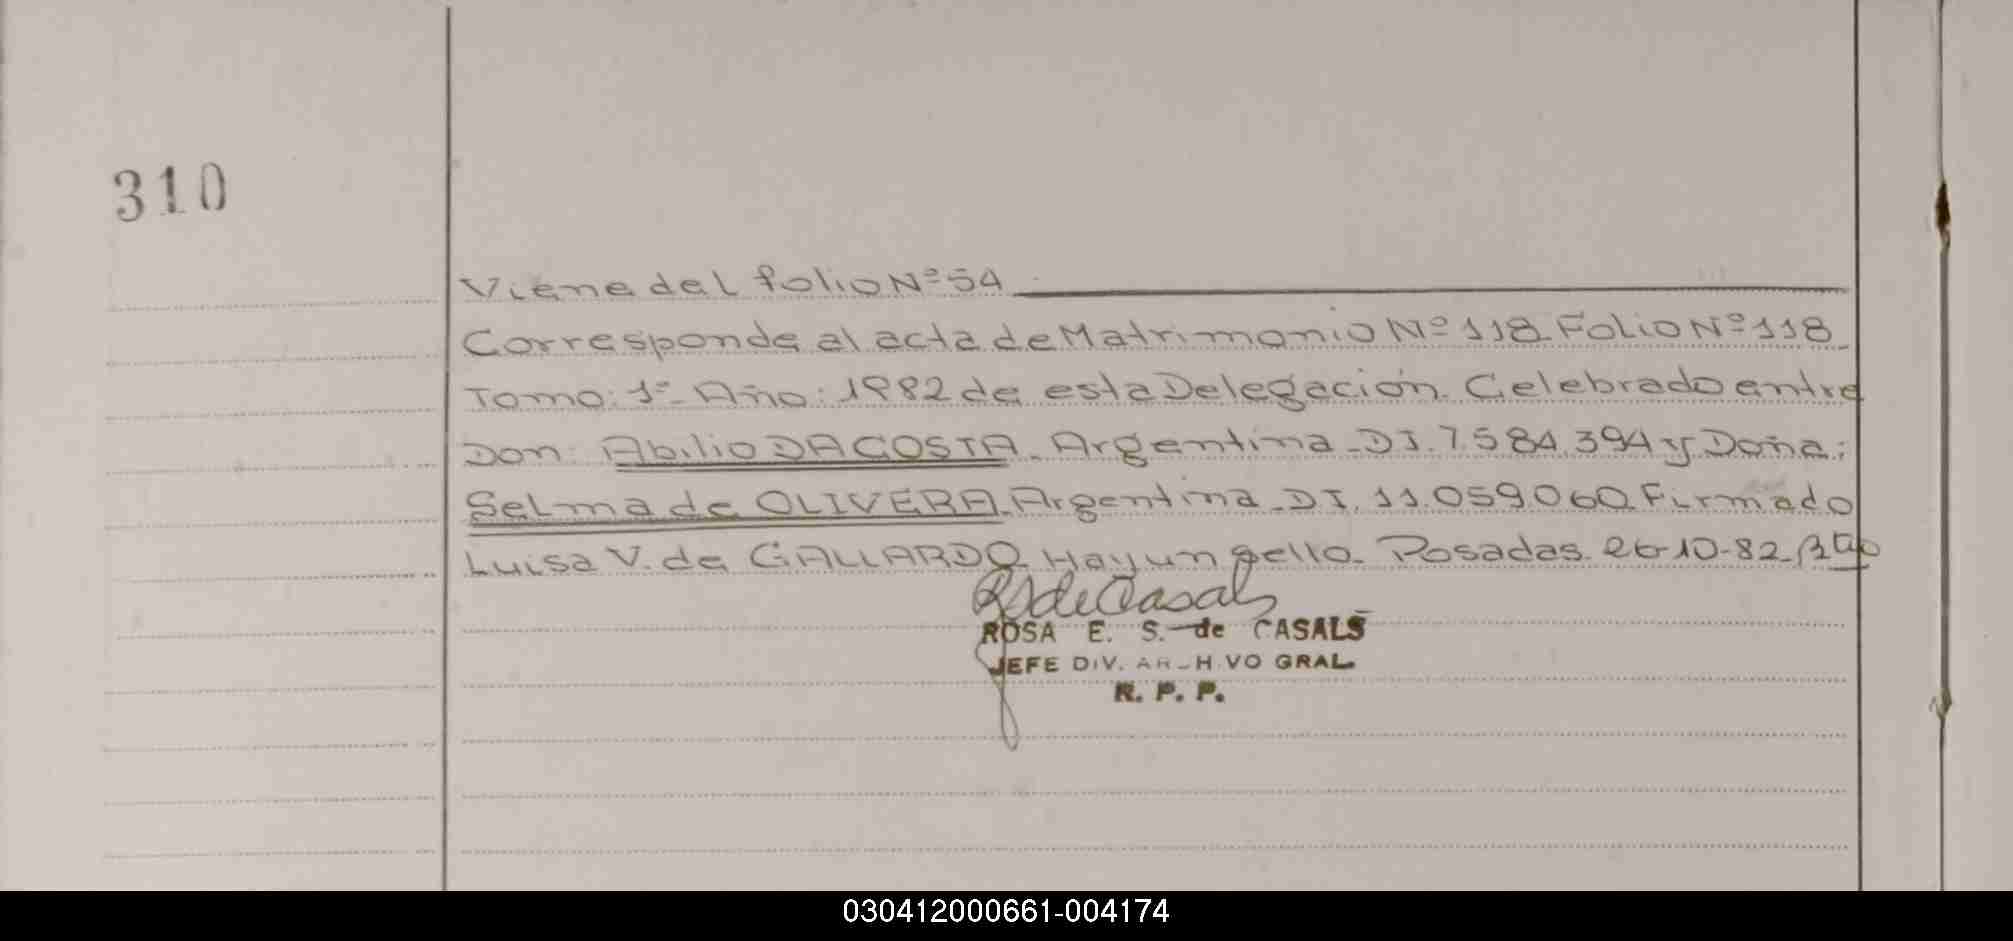 310
Viene del folio Nº 54
Corresponde al acta de Matrimonio Nº 118. Folio Nº 118
Tomo: 1º- Año: 1982 de esta Delegación. Celebrado entre
Don: Abilio DACOSTA. Argentina - DI. 7.584.394 y Doña:
Selma de OLIVERA. Argentina - DI. 11.059.060. Firmado
Luisa V. de GALLARDO. Hay un sello. Posadas. 26-10-82.
RS de Casals
ROSA E. S. de CASALS
JEFE DIV. ARCHIVO GRAL.
R. P. P.
030412000661-004174